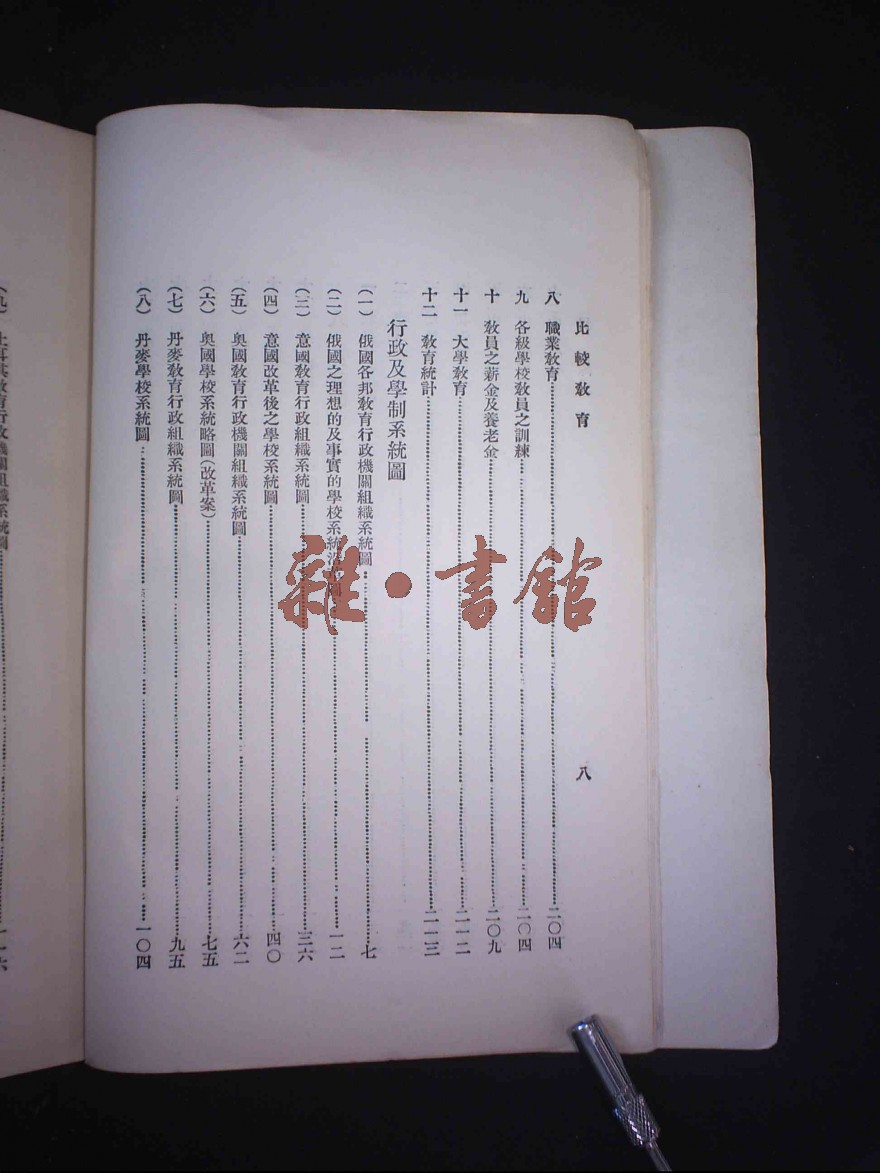 比較教育
八
八 職業教育……二〇四
九 各級學校教員之訓練……二〇四
十 教員之薪金及養老金……二〇九
十一 大學教育……二一二
十二 教育統計……二一三
行政及學制系統圖
(一) 俄國各邦教育行政機關組織系統圖……七
(二) 俄國之理想的及事實的學校系統圖……一二
(三) 意國教育行政組織系統圖……三六
(四) 意國改革後之學校系統圖……四〇
(五) 奧國教育行政機關組織系統圖……六二
(六) 奧國學校系統略圖(改革案)……七五
(七) 丹麥教育行政組織系統圖……九五
(八) 丹麥學校系統圖……一〇四
(九) 土耳其教育行政機關組織系統圖……一一六
雜·書館